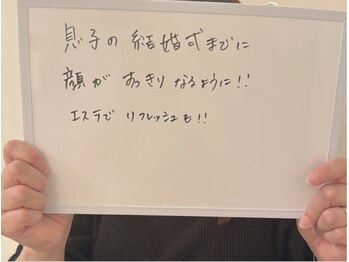 息子の結婚式までに
顔がすっきりなるように!!
エステでリフレッシュも!!